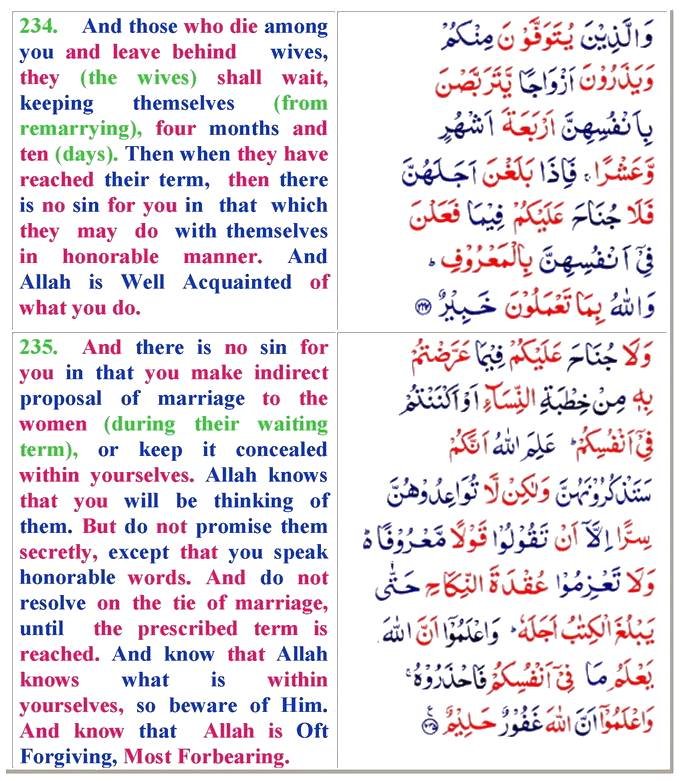 234. And those who die among
you and leave behind wives,
they (the wives) shall wait,
keeping themselves (from
remarrying), four months and
ten (days). Then when they have
reached their term, then there
is no sin for you in that which
they may do with themselves
in honorable manner. And
Allah is Well Acquainted of
what you do.
وَالَّذِيْنَ يُتَوَفَّوْنَ مِنْكُمْ
وَيَذَرُوْنَ اَزْوَاجًا يَّتَرَبَّصْنَ
بِاَنْفُسِهِنَّ اَرْبَعَةَ اَشْهُرٍ
وَّعَشْرًا ۚ فَاِذَا بَلَغْنَ اَجَلَهُنَّ
فَلَا جُنَاحَ عَلَيْكُمْ فِيْمَا فَعَلْنَ
فِيْٓ اَنْفُسِهِنَّ بِالْمَعْرُوْفِ ؕ
وَاللّٰهُ بِمَا تَعْمَلُوْنَ خَبِيْرٌ ۝۲۳۴
235. And there is no sin for
you in that you make indirect
proposal of marriage to the
women (during their waiting
term), or keep it concealed
within yourselves. Allah knows
that you will be thinking of
them. But do not promise them
secretly, except that you speak
honorable words. And do not
resolve on the tie of marriage,
until the prescribed term is
reached. And know that Allah
knows what is within
yourselves, so beware of Him.
And know that Allah is Oft
Forgiving, Most Forbearing.
وَلَا جُنَاحَ عَلَيْكُمْ فِيْمَا عَرَّضْتُمْ
بِهٖ مِنْ خِطْبَةِ النِّسَآءِ اَوْ اَكْنَنْتُمْ
فِيْٓ اَنْفُسِكُمْ ؕ عَلِمَ اللّٰهُ اَنَّكُمْ
سَتَذْكُرُوْنَهُنَّ وَلٰكِنْ لَّا تُوَاعِدُوْهُنَّ
سِرًّا اِلَّآ اَنْ تَقُوْلُوْا قَوْلًا مَّعْرُوْفًا ؕ
وَلَا تَعْزِمُوْا عُقْدَةَ النِّكَاحِ حَتّٰى
يَبْلُغَ الْكِتٰبُ اَجَلَهٗ ؕ وَاعْلَمُوْٓا اَنَّ اللّٰهَ
يَعْلَمُ مَا فِيْٓ اَنْفُسِكُمْ فَاحْذَرُوْهُ ۚ
وَاعْلَمُوْٓا اَنَّ اللّٰهَ غَفُوْرٌ حَلِيْمٌ ۝۲۳۵